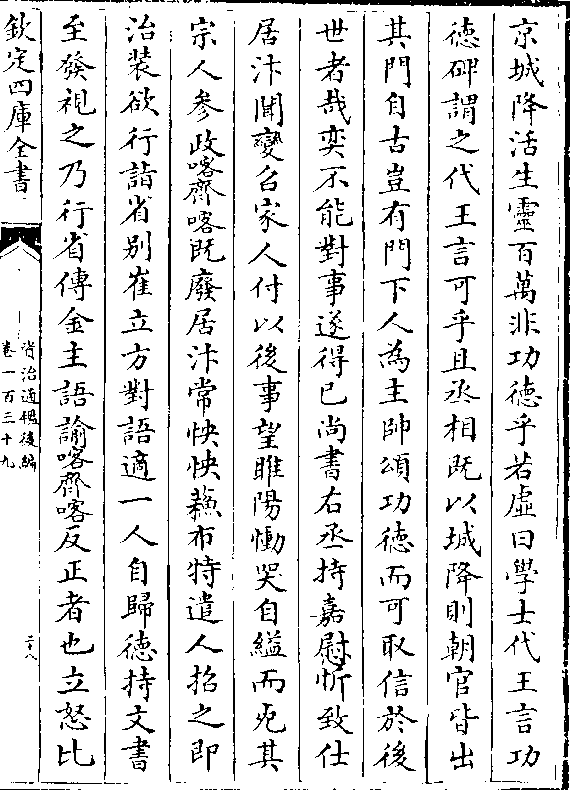 京城降活生靈百萬非功德乎若虛曰學士代王言功
德碑謂之代王言可乎且丞相既以城降則朝官皆出
其門自古豈有門下人為主帥頌功德而可取信於後
世者哉奕不能對事遂得已尚書右丞持嘉慰忻致仕
居汴聞變召家人付以後事望睢陽慟哭自縊而死其
宗人參政喀齊喀既廢居汴常怏怏蘓布特遣人招之即
治装欲行詣省别崔立方對語適一人自歸德持文書
至發視之乃行省傳金主語諭喀齊喀反正者也立怒比
欽定四庫全書
資治通鑑後編
卷一百三十九
二十八